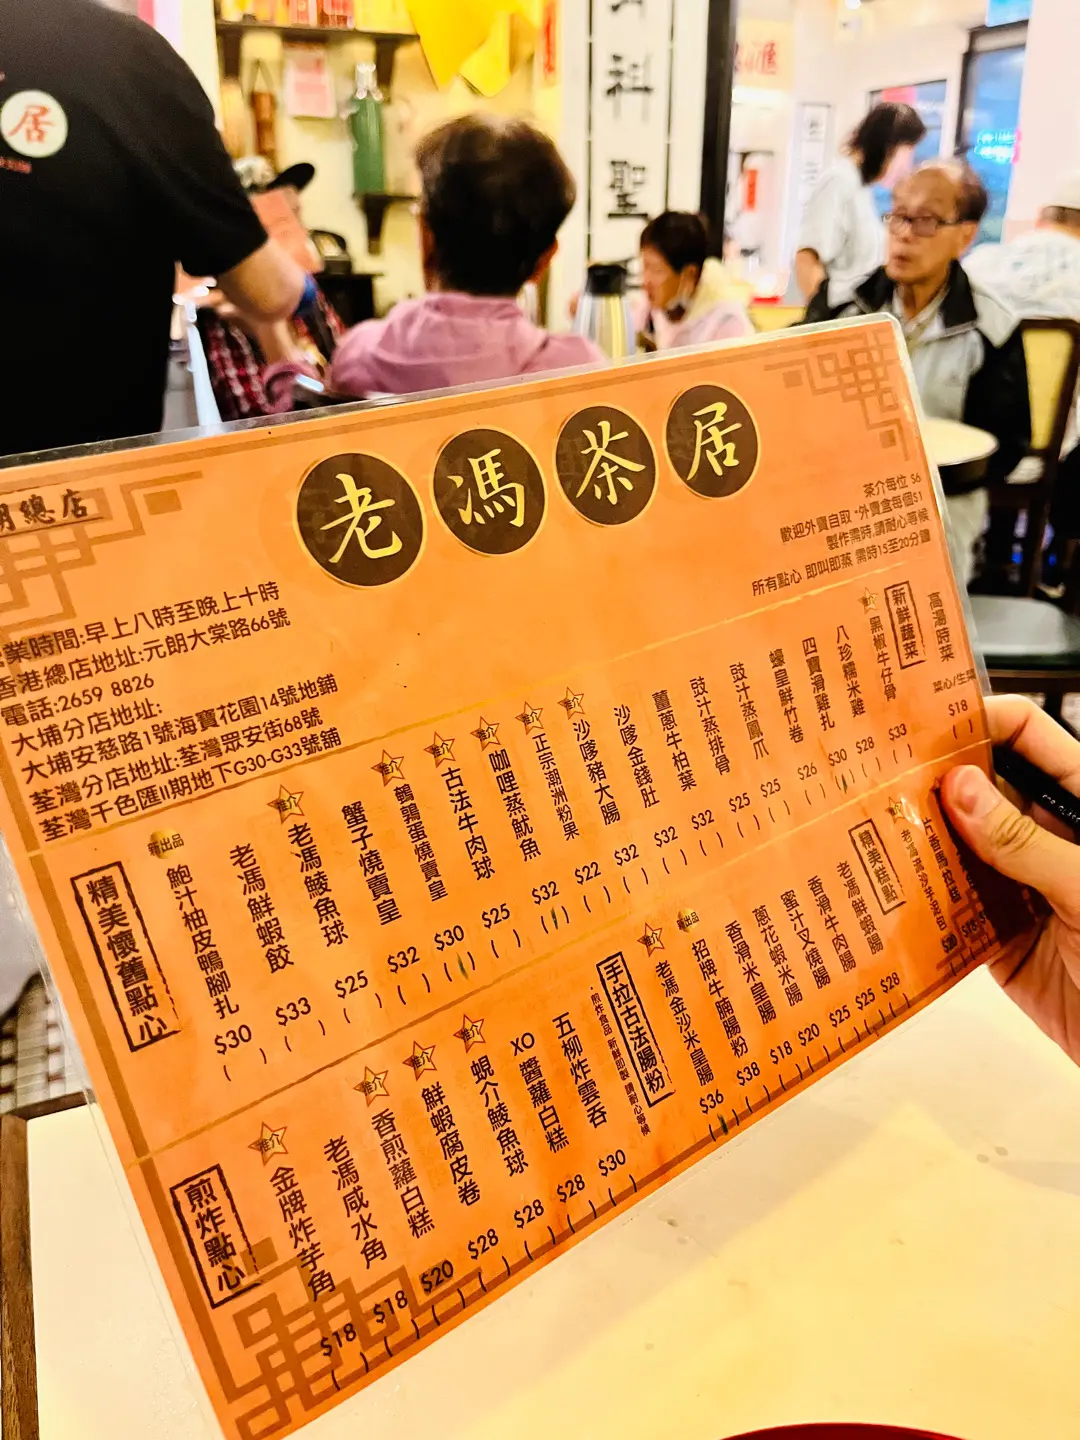 居
科
聖
朗總店
老馮茶居
茶介每位 $6
歡迎外賣自取 *外賣盒每個$1
製作需時,請耐心等候
所有點心 即叫即蒸 需時15至20分鐘
營業時間:早上八時至晚上十時
香港總店地址:元朗大棠路66號
電話:2659 8826
大埔分店地址:
大埔安慈路1號海寶花園14號地鋪
荃灣分店地址:荃灣眾安街68號
荃灣千色匯II期地下G30-G33號舖
精美懷舊點心
新出品
鮑汁柚皮鴨腳扎 $30 ( )
老馮鮮蝦餃 $33 ( )
推介
老馮鯪魚球 $25 ( )
蟹子燒賣皇 $32 ( )
推介
鵪鶉蛋燒賣皇 $30 ( )
推介
古法牛肉球 $25 ( )
推介
咖哩蒸魷魚 $32 ( )
推介
正宗潮洲粉果 $22 ( )
推介
沙嗲豬大腸 $32 ( )
沙嗲金錢肚 $32 ( )
薑蔥牛柏葉 $32 ( )
豉汁蒸排骨 $25 ( )
豉汁蒸鳳爪 $25 ( )
蠔皇鮮竹卷 $26 ( )
四寶滑雞扎 $30 ( )
八珍糯米雞 $28 ( )
推介
黑椒牛仔骨 $33 ( )
新鮮蔬菜
高湯時菜
菜心/生菜
$18 ( )
煎炸點心
推介
金牌炸芋角 $18 ( )
老馮咸水角 $18 ( )
推介
香煎蘿白糕 $20 ( )
推介
鮮蝦腐皮卷 $28 ( )
推介
蜆介鯪魚球 $28 ( )
XO醬蘿白糕 $28 ( )
五柳炸雲吞 $30 ( )
*煎炸食品 新鮮即製 請耐心等候
手拉古法腸粉
推介
老馮金沙米皇腸 $36 ( )
新出品
招牌牛腩腸粉 $38 ( )
香滑米皇腸 $18 ( )
蔥花蝦米腸 $20 ( )
蜜汁叉燒腸 $25 ( )
香滑牛肉腸 $25 ( )
老馮鮮蝦腸 $28 ( )
精美糕點
推介
老馮流沙羊泥包